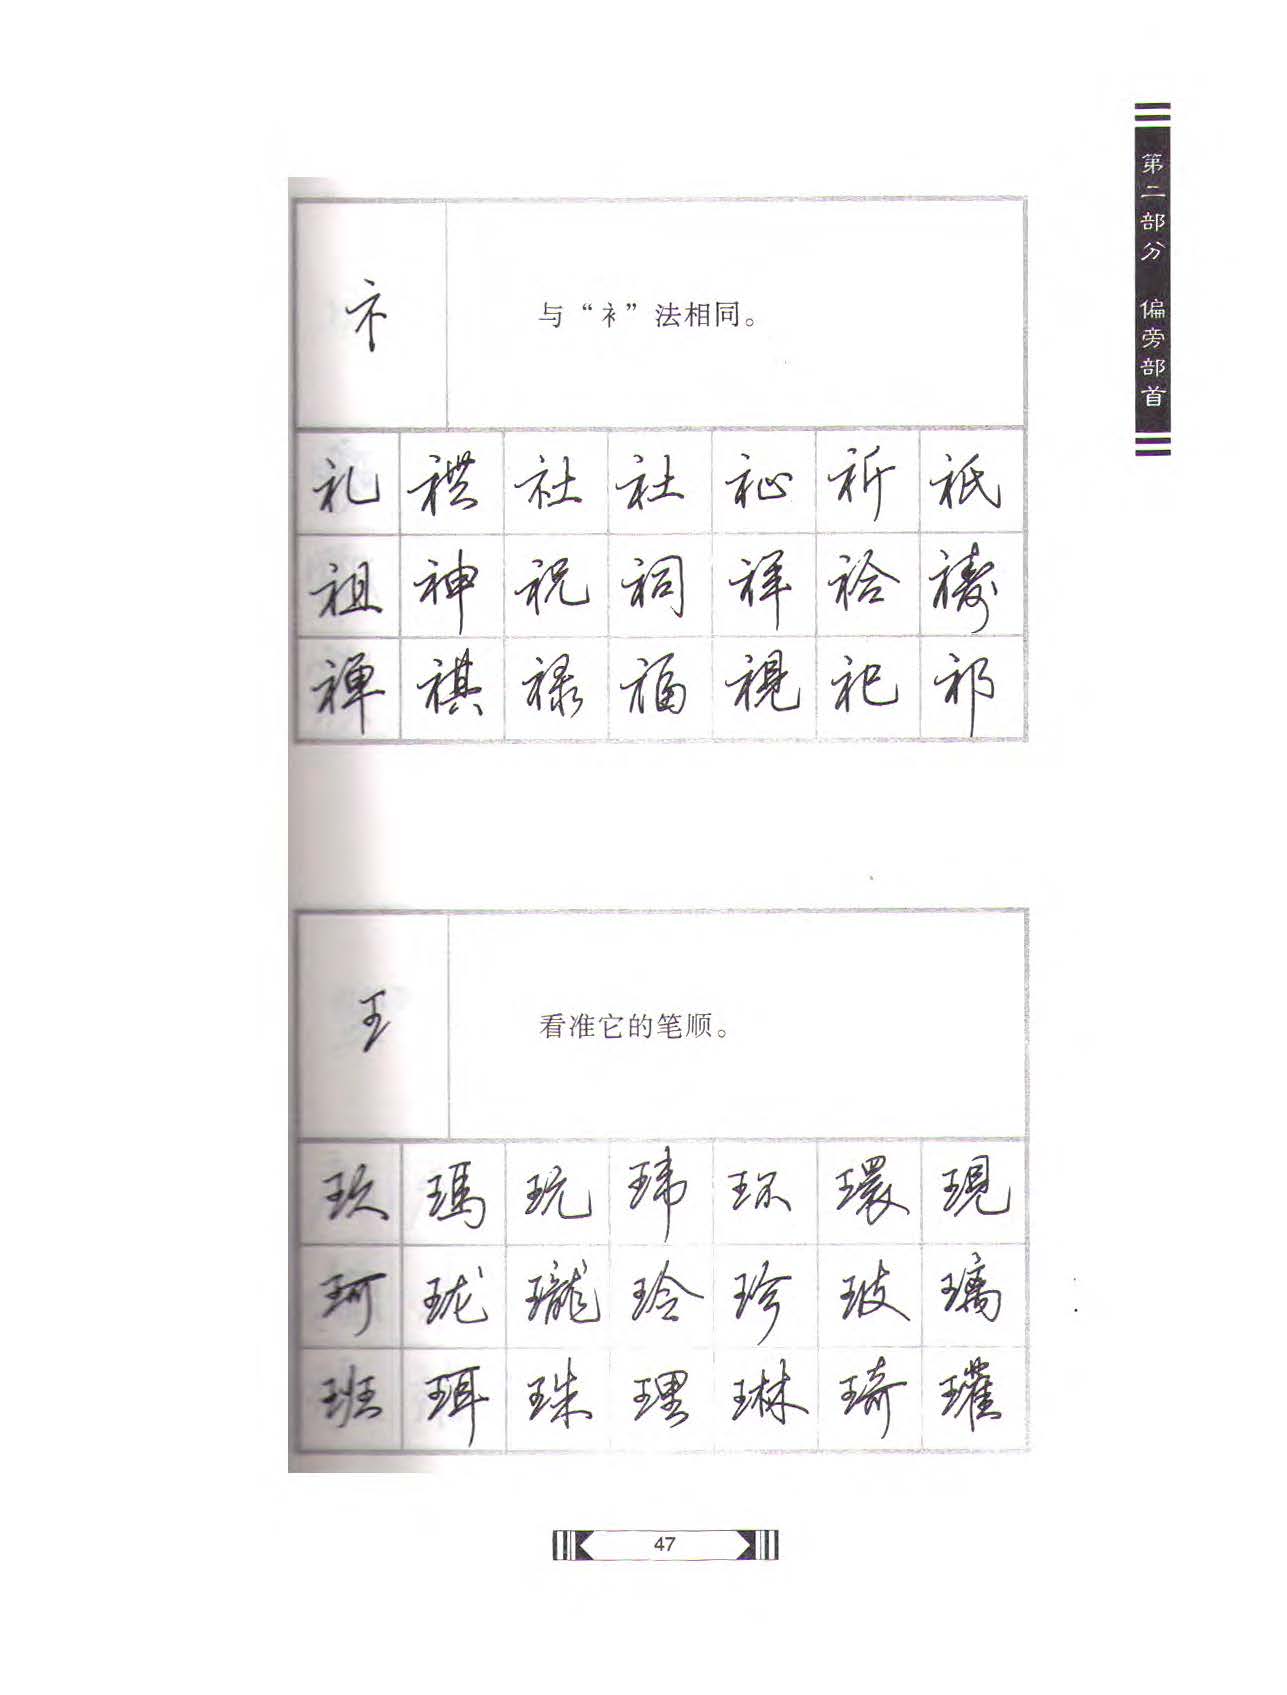 第二部分 偏旁部首
礻
与“衤”法相同。
礼 禥 社 社 祉 祈 祇
祖 神 祝 祠 祥 祫 祷
禅 祺 禄 福 視 祀 祁
王
看准它的笔顺。
玖 瑪 玩 玮 环 環 現
珂 珑 瓏 玲 珍 玻 璃
班 珥 珠 理 琳 琦 瓘
47